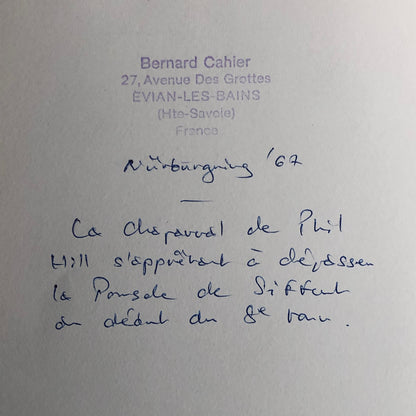 Bernard Cahier
27, Avenue Des Grottes
EVIAN-LES-BAINS
(Hte-Savoie)
France
Nürburgring '67
La Chaparral de Phil
Hill s'apprêtant à dépasser
la Porsche de Siffert
au début du 8e tour.